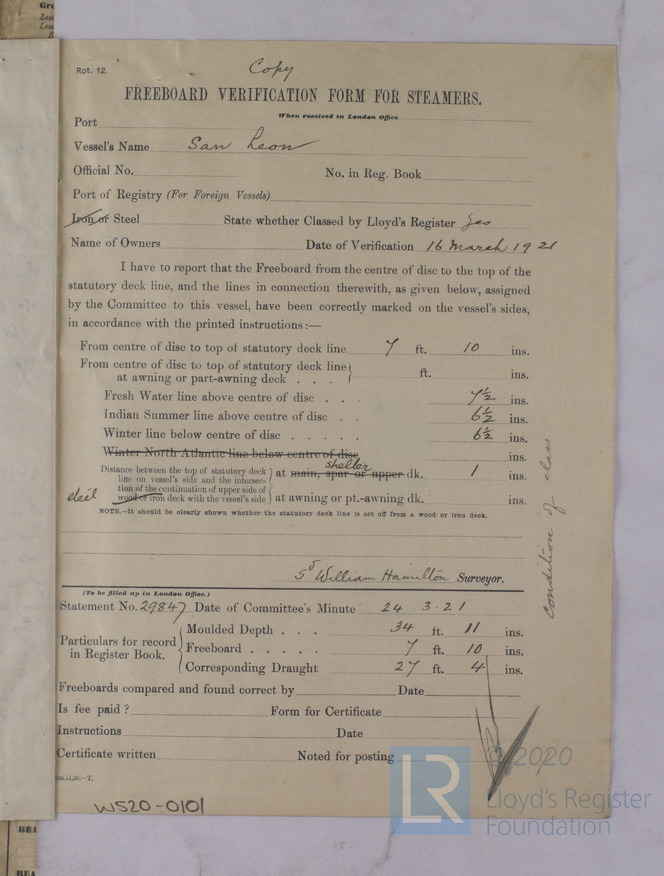 Rpt. 12.
Copy
FREEBOARD VERIFICATION FORM FOR STEAMERS.
When received in London Office
Port
Vessel's Name San Leon
Official No. No. in Reg. Book
Port of Registry (For Foreign Vessels)
Iron or Steel State whether Classed by Lloyd's Register Yes
Name of Owners Date of Verification 16 March 1921
I have to report that the Freeboard from the centre of disc to the top of the
statutory deck line, and the lines in connection therewith, as given below, assigned
by the Committee to this vessel, have been correctly marked on the vessel's sides,
in accordance with the printed instructions:—
From centre of disc to top of statutory deck line 7 ft. 10 ins.
From centre of disc to top of statutory deck line
at awning or part-awning deck . . . ft. ins.
Fresh Water line above centre of disc . . . 7½ ins.
Indian Summer line above centre of disc . . 6½ ins.
Winter line below centre of disc . . . . . 6½ ins.
Winter North Atlantic line below centre of disc ins.
Distance between the top of statutory deck
line on vessel's side and the intersec-
tion of the continuation of upper side of
wood or iron deck with the vessel's side
steel
shelter
at main, spar or upper dk. 1 ins.
at awning or pt.-awning dk. ins.
NOTE.—It should be clearly shown whether the statutory deck line is set off from a wood or iron deck.
condition of class
Sd William Hamilton Surveyor.
(To be filled up in London Office.)
Statement No. 29847 Date of Committee's Minute 24 3.21
Particulars for record
in Register Book.
Moulded Depth . . . 34 ft. 11 ins.
Freeboard . . . . . 7 ft. 10 ins.
Corresponding Draught 27 ft. 4 ins.
Freeboards compared and found correct by Date
Is fee paid? Form for Certificate
Instructions Date
Certificate written Noted for posting
W520-0101
LR
© 2020
Lloyd's Register
Foundation